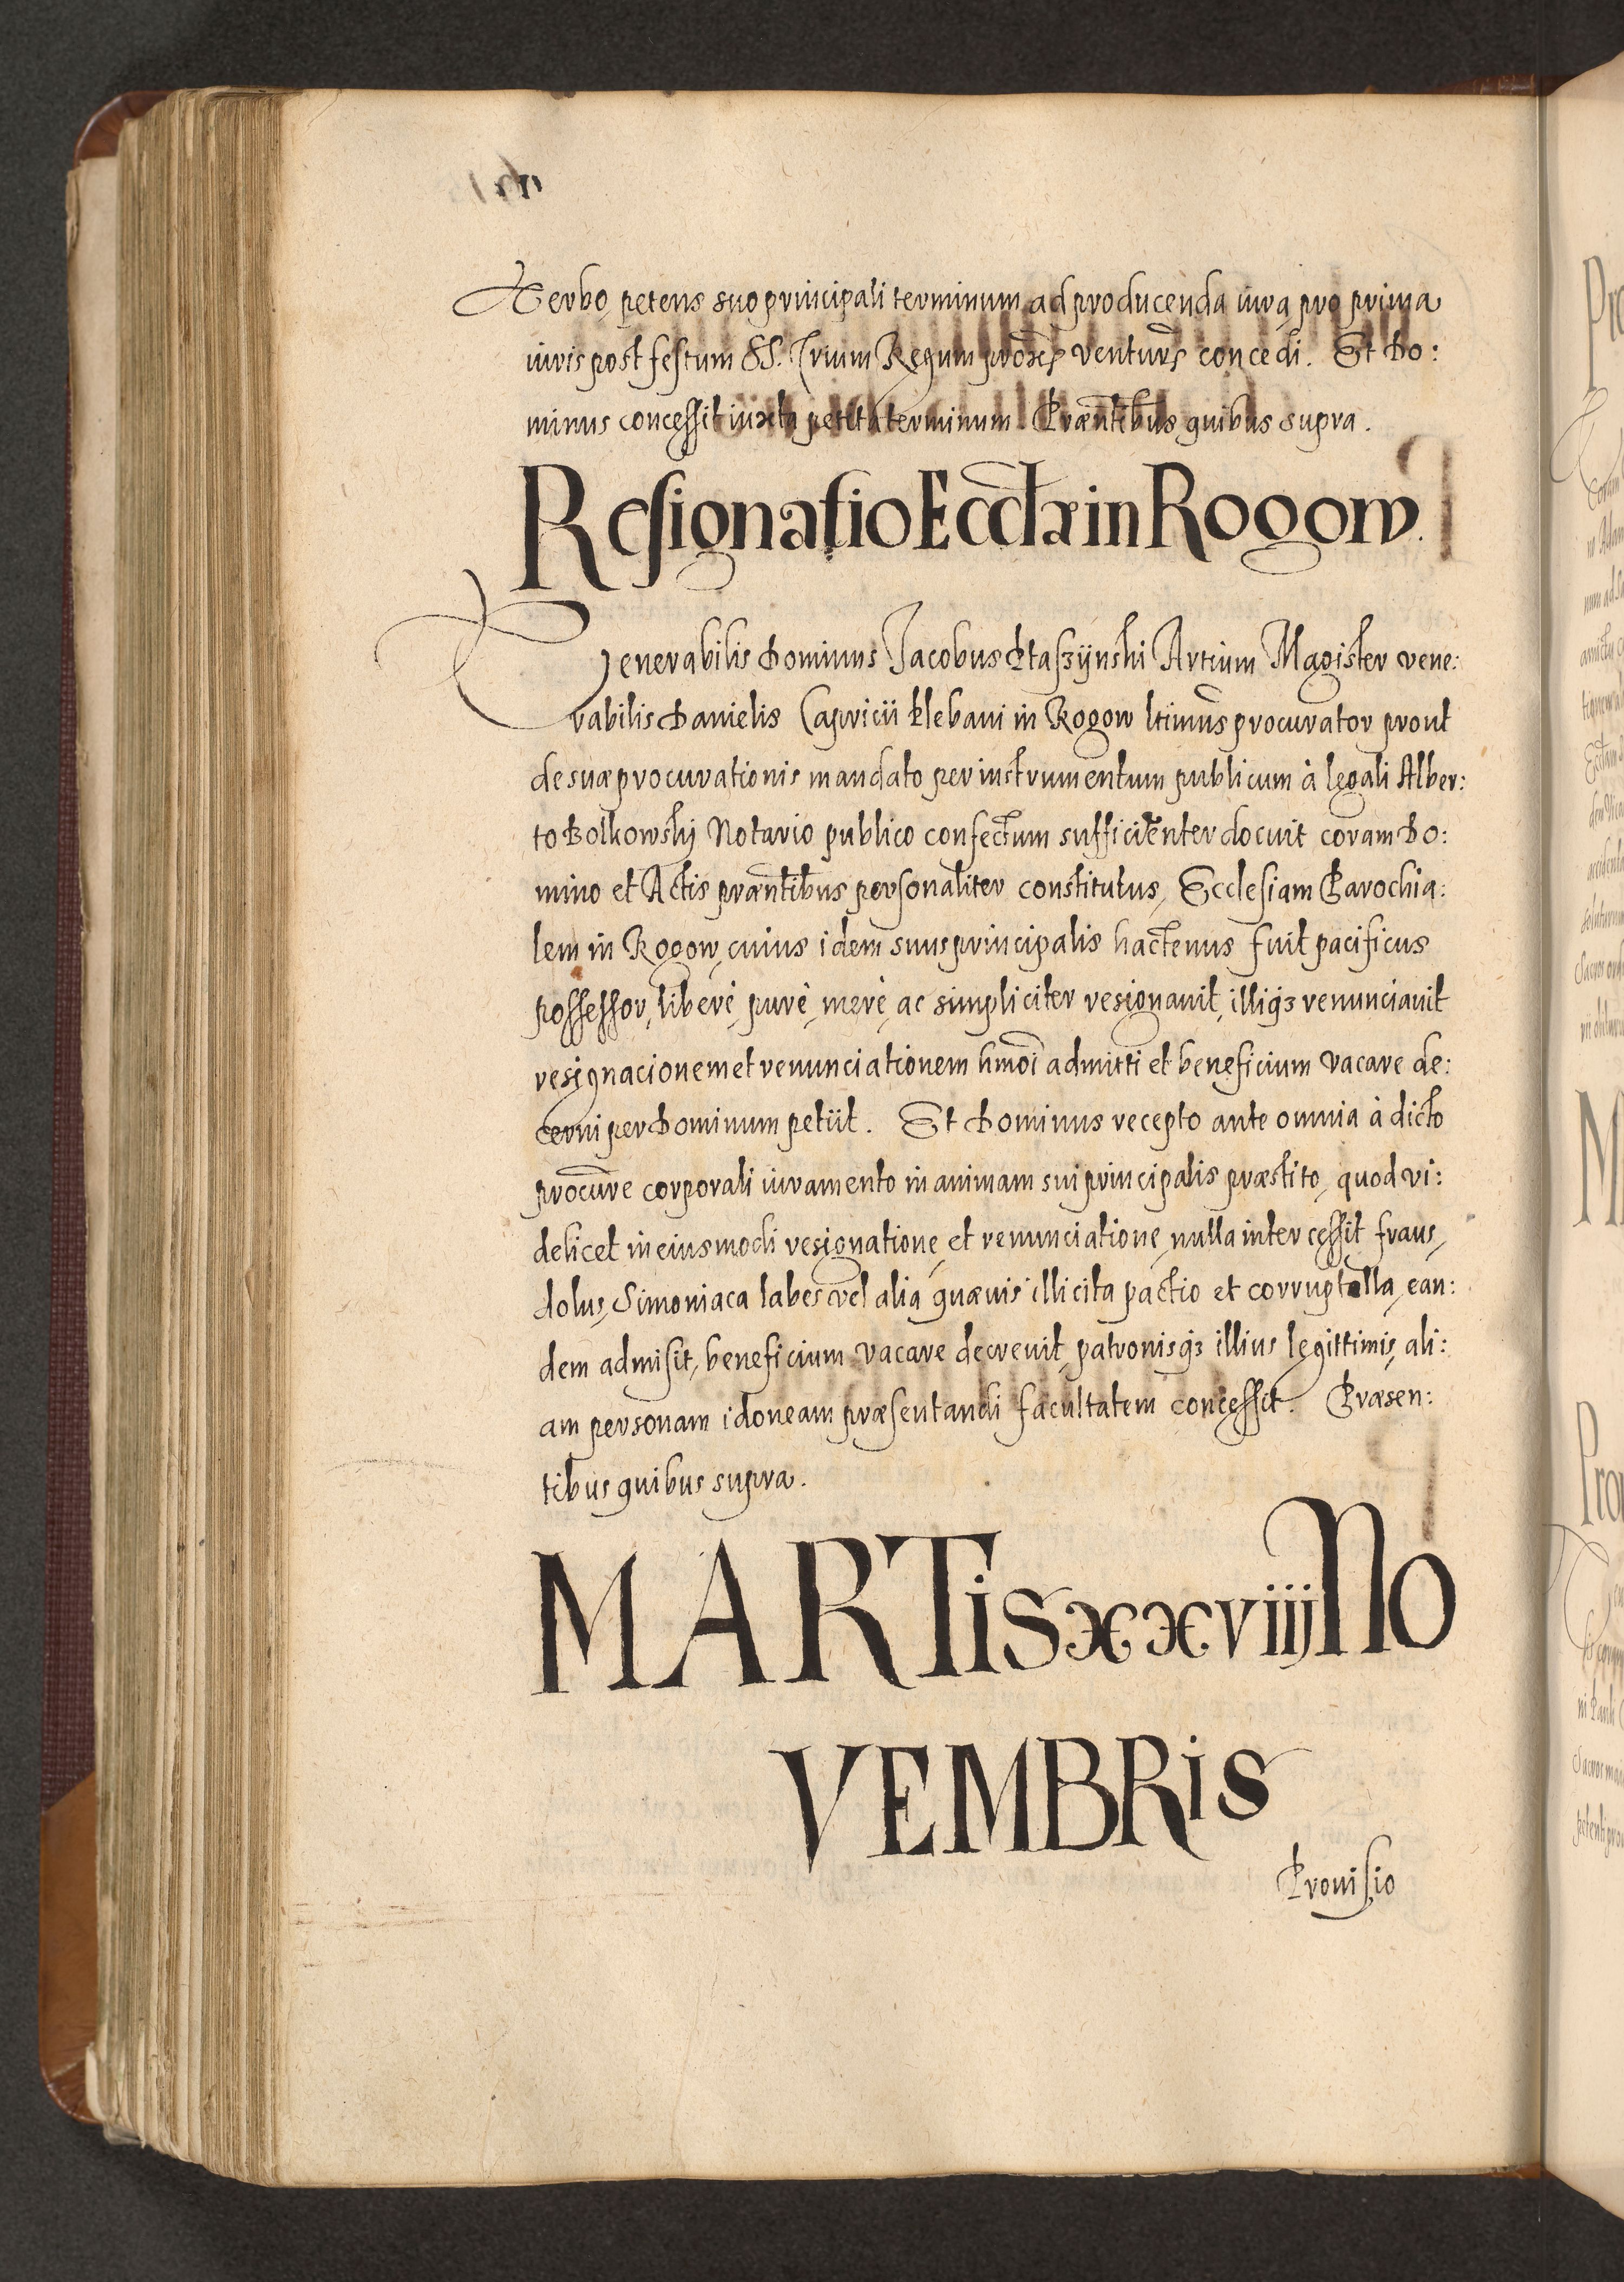 Verbo, petens suo principali terminum ad producenda iura pro prima
iuris post festum SS. Trium Regum proxẽ venturũ concedi. Et Do:
minus concessit iuxta petita terminum. Præntibus quibus supra.
Resignatio Eccłæ in Rogow.
Venerabilis Dominus Jacobus Ptaszÿnski Artium Magister vene:
rabilis Danielis Capricii Plebani in Rogow ltimus procurator prout
de suæ procurationis mandato per instrumentum publicum à legali Alber:
to Bolkowskÿ Notario publico confectum sufficienter docuit coram Do:
mino et Actis præntibus personaliter constitutus, Ecclesiam Parochia:
lem in Rogow, cuius idem suus principalis hactenus fuit pacificus
possessor, liberè, purè, merè, ac simpliciter resignauit, illiqꝫ renunciauit
resignacionem et renunciationem hmõi admitti et beneficium vacare de:
cerni per Dominum petiit. Et Dominus recepto ante omnia à dicto
procũre corporali iuramento in animam sui principalis præstito, quod vi:
delicet in eiusmodi resignatione, et renunciatione, nulla intercessit fraus,
dolus, Simoniaca labes vel alia quæuis illicita pactio et corruptella, ean:
dem admisit, beneficium vacare decreuit, patronisqꝫ illius legittimis, ali:
am personam idoneam præsentandi facultatem concessit. Præsen:
tibus quibus supra.
MARTis xxviiij No
VEMBRis
Prouisio